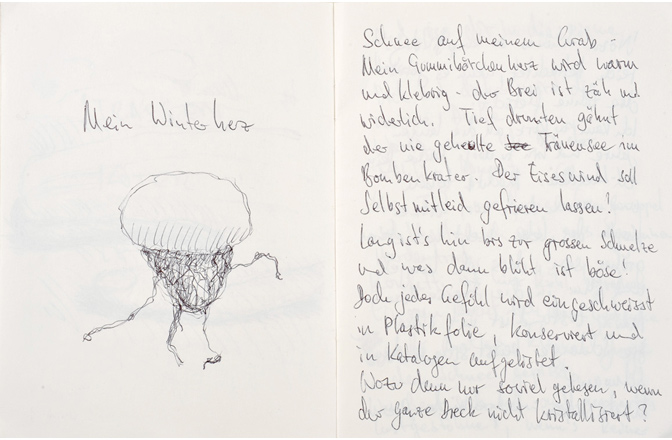 Mein Winterherz
Schnee auf meinem Grab -
Mein Gummibärchenherz wird warm
und klebrig - der Brei ist zäh und
widerlich. Tief drunten gähnt
der nie geheulte See Tränensee im
Bombenkrater. Der Eiseswind soll
Selbstmitleid gefrieren lassen!
Lang ist's hin bis zur grossen Schmelze
und was dann blüht ist böse!
Doch jedes Gefühl wird eingeschweisst
in Plastikfolie, konserviert und
in Katalogen aufgelistet.
Wozu denn nur soviel gehesen, wenn
der ganze Dreck nicht kristallisiert?